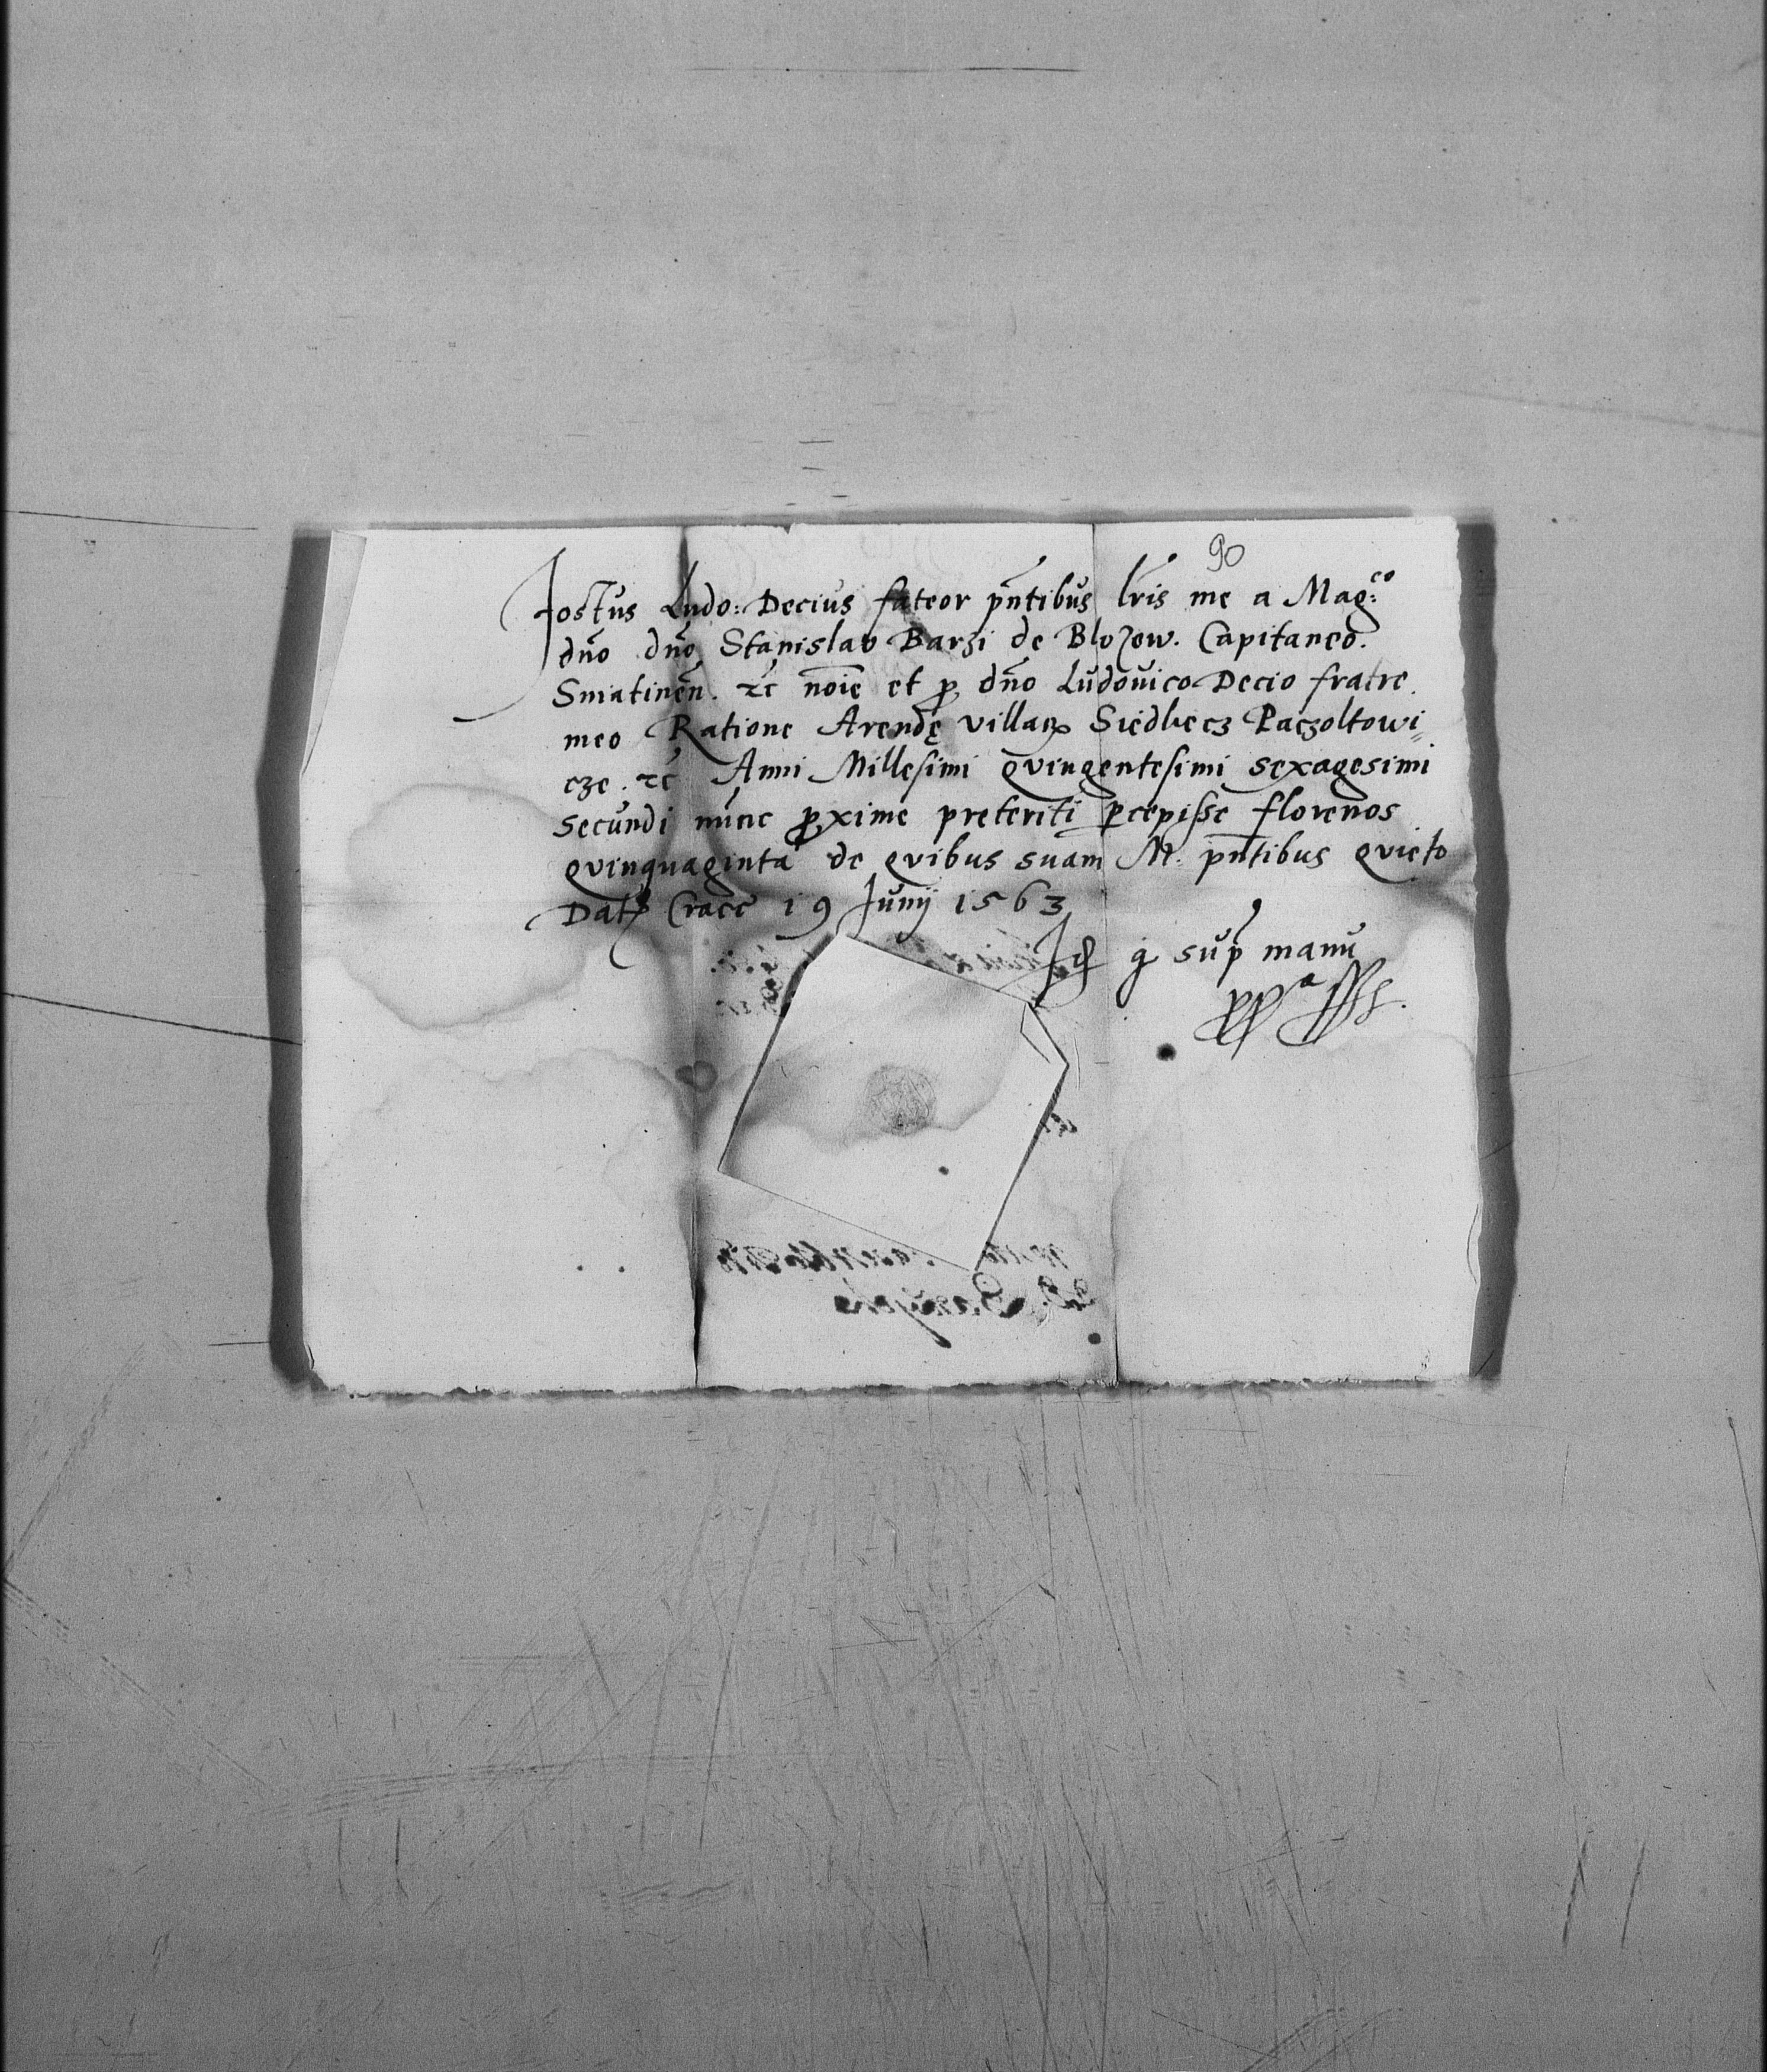 90
Jostus Ludo: Decius fateor pñtibus lr̃is me a Mag:co
dño dño Stanislao Barzi de Blozew. Capitaneo.
Sniatineñ. &c̃ noĩe et ꝓ dño Ludovico Decio fratre
meo Ratione Arendę villaꝝ Siedlecz Paczoltowi=
cze. &c̃ Anni Millesimi qvingentesimi sexagesimi
secundi nunc ꝓxime preteriti ꝑcepisse florenos
qvinquaginta de qvibus suam M. pñtibus qvieto
Datꝭ Cracc̃ 19 Junij 1563
Idẽ q̃ sup̃ manu
ppa